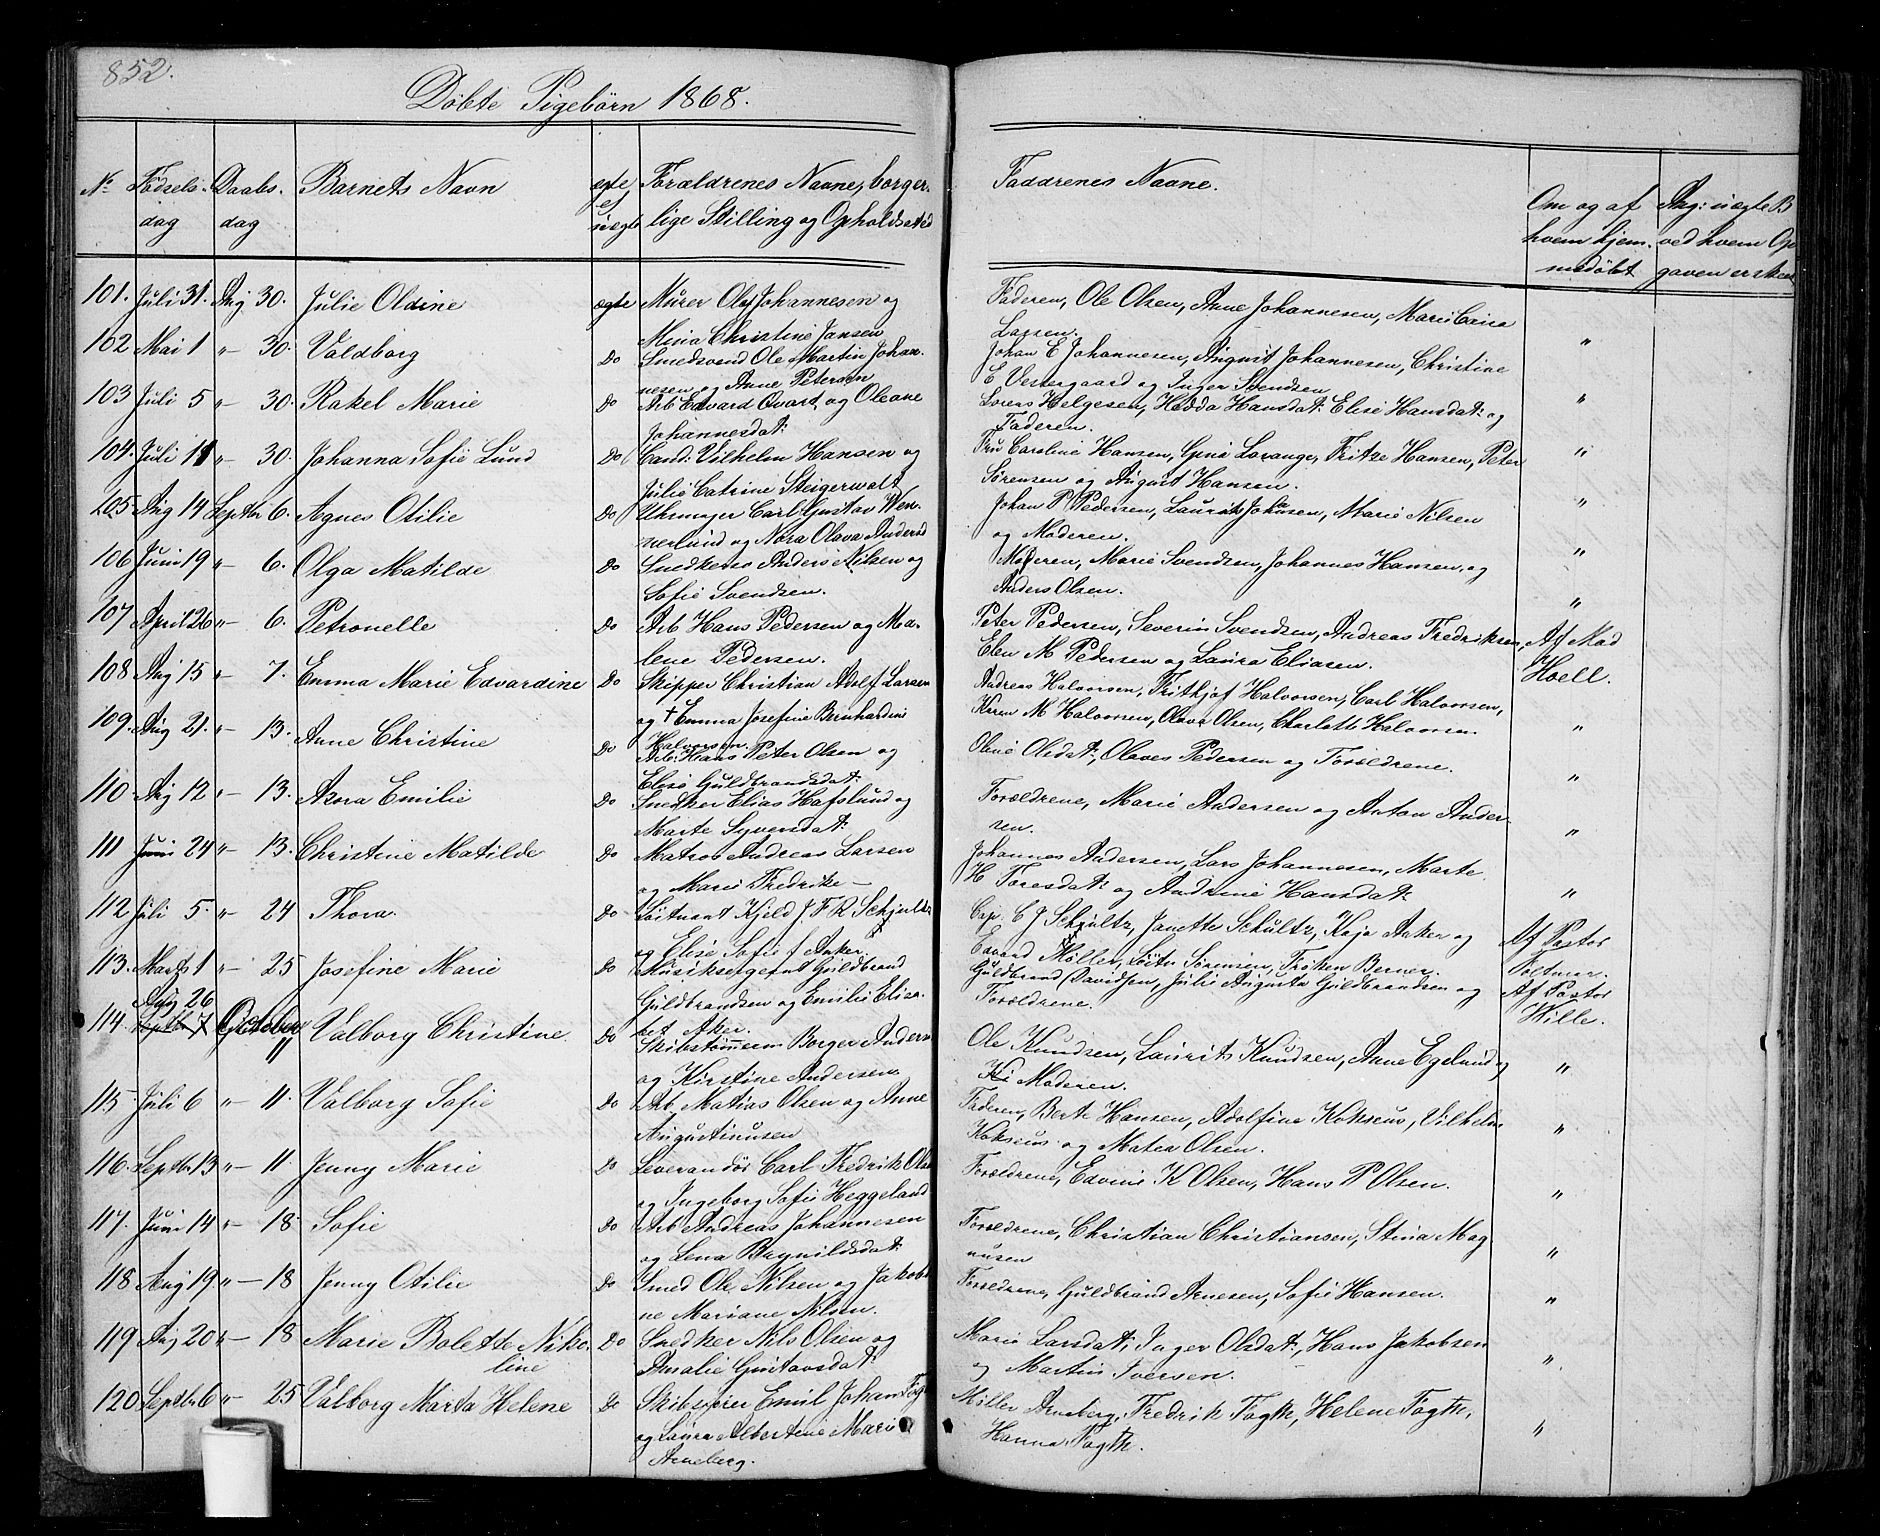 852.
Döbte Pigebörn 1868.
No Födsels- Daabs- Barnets Navn ægte Forældrenes Navne, borger- Faddrenes Navne. Om og af Ang: uægte B
dag dag el uægte lige Stilling og Opholdssted hvem hjem- ved hvem Op
medöbt gaven er skeet
101. Juli 31. Aug 30. Julie Oldine ægte Murer Ole Johannesen og Faderen, Ole Olsen, Anne Johannesen, Marie
Mina Christine Jansen Larsen.
102 Mai 1 " 30. Valdborg Do Smedsvend Ole Martin Johan- Johan E Johannesen, August Johannesen, Christine "
nesen og Anne Petersen E Vestergaard og Inger Svendsen
103 Juli 5 " 30. Rakel Marie Do Arb Edvard Qvart og Oleane Lorens Helgesen, Hedda Hansdat: Elise Hansdat: og "
Johannesdat: Faderen.
104. Juli 11 " 30. Johanna Sofie Lund Do Cand: Vilhelm Hansen og Fru Caroline Hansen, Gina Lorange, Fritze Hansen, Peter "
Julie Catrine Steigerwalt Sörensen og August Hansen.
205 Aug 14 Septbr 6. Agnes Otilie Do Uhrmager Carl Gustav Wen- Johan P Pedersen, Laurits Johansen, Marie Nilsen "
nerlund og Nora Olava Anders og Moderen.
106 Juni 19 " 6. Olga Matilde Do Snedkersv Anders Nilsen og Moderen, Marie Svendsen, Johannes Hansen, og "
Sofie Svendsen. Anders Olsen.
107 April 26 " 6. Petronelle Do Arb Hans Pedersen og Ma- Peter Pedersen, Severin Svendsen, Andreas Fredriksen, Af Mad
lene Pedersen. Elen M Pedersen og Laura Eliasen. Hoell.
108 Aug 15 " 7. Emma Marie Edvardine Do Skipper Christian Adolf Larsen Andreas Halvorsen, Frithjof Halvorsen, Carl Halvorsen,
og † Emma Josefine Bernhardine Karen M Halvorsen, Olava Olsen, Charlotte Halvorsen. "
Halvorsen.
109. Aug 21. " 13. Anne Christine Do Arb: Hans Peter Olsen og Oline Olsdat:, Olaves Pedersen og Forældrene. "
Elise Guldbrandsdat:
110 Aug 12 " 13. Anna Emilie Do Snedker Elias Hafslund og Forældrene, Marie Andersen og Anton Ander-
Marte Syversdat: sen. "
111 Juni 24 " 13. Christine Matilde Do Matros Andreas Larsen Johannes Andersen, Lars Johannesen, Marte
og Marie Fredrikke — H Toresdat: og Andrine Hansdat: "
112 Juli 5. " 24 Thora Do Löitnant Kjeld J. F. R. Schjultz Cap. C J Schultz, Janette Schultz, Kaja Anker og Af Pastor
og Elise Sofie f Anker Edvard Möller, Löitn Sörensen, Fröken Berner.
113. Marts 1 " 25 Josefine Marie Do Musiksergeant Guldbrand Guldbrand Davidsen, Julie Augusta Guldbrandsen og Af Pastor
Guldbrandsen og Emilie Elisa- Forældrene. Wille.
bet Aker.
Aug 26
114. Septbr 7 October 11 Valborg Christine Do Skibstömmerm Borger Anders Ole Knudsen, Laurits Knudsen, Anne Egelund og "
og Kirstine Andersen Moderen.
115. Juli 6 " 11. Valborg Sofie Do Arb. Matias Olsen og Anne Faderen, Berte Hansen, Adolfine Kokseus, Vilhelm "
Augustinusen Kokseus og Matea Olsen.
116. Septbr 13 " 11. Jenny Marie Do Leverandör Carl Fredrik Olsen Forældrene, Edvine K Olsen, Hans P Olsen. "
og Ingeborg Sofie Heggeland
117. Juni 14 " 18. Sofie Do Arb Andreas Johannesen Forældrene, Christian Christiansen, Stina Mag "
og Lena Bagnildsdat: nusen
118 Aug 19. " 18 Jenny Otilie Do Smed Ole Nilsen og Jakobi Forældrene, Guldbrand Arnesen, Sofie Hansen. "
ne Mariane Nilsen.
119 Aug 20 " 18 Marie Bolette Niko- Do Snedker Nils Olsen og Marie Larsdat:, Inger Olsdat:, Hans Jakobsen "
line Amalie Gustavsdat: og Martin Iversen.
120 Septbr 6 " 25 Valborg Marta Helene Do Skibsförer Emil Johan Fogt Miller Arneberg, Fredrik Fogth, Helene Fogth, "
og Laura Albertine Marie Hanna Fogth.
Arneberg.